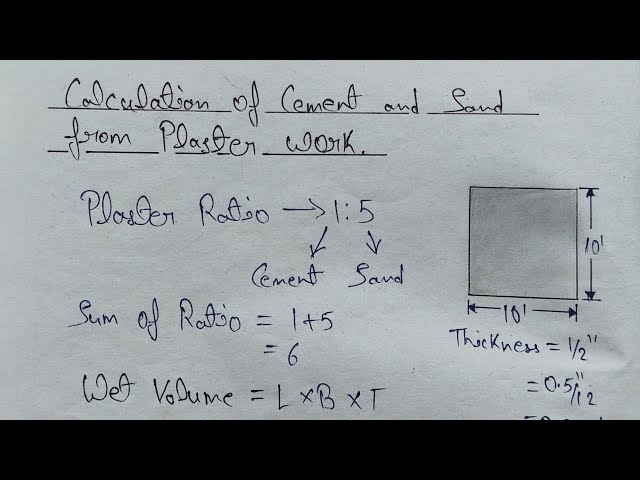 Calculation of Cement and Sand
from Plaster work.
Plaster Ratio → 1:5
Cement Sand
Sum of Ratio = 1+5
= 6
Wet Volume = L × B × T
10'
10'
Thickness = 1/2"
= 0.5"/12